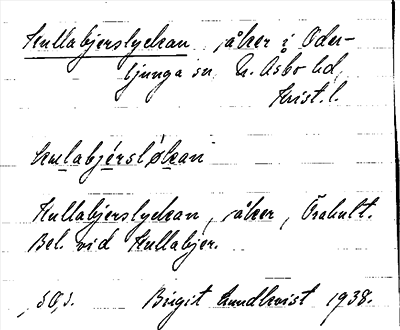 Kullabjerslyckan, åker i Oder-
ljunga sn N. Åsbo hd,
Krist. l.
kulabjérsløkan
Kullabjerslyckan, åker, Örahult.
Bel. vid Kullabjer.
Birgit Lundkvist 1938.